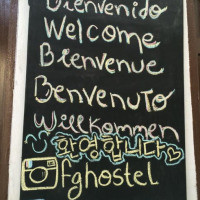 Bienvenido
Welcome
Bienvenue
Benvenuto
Willkommen
환영합니다
fghostel